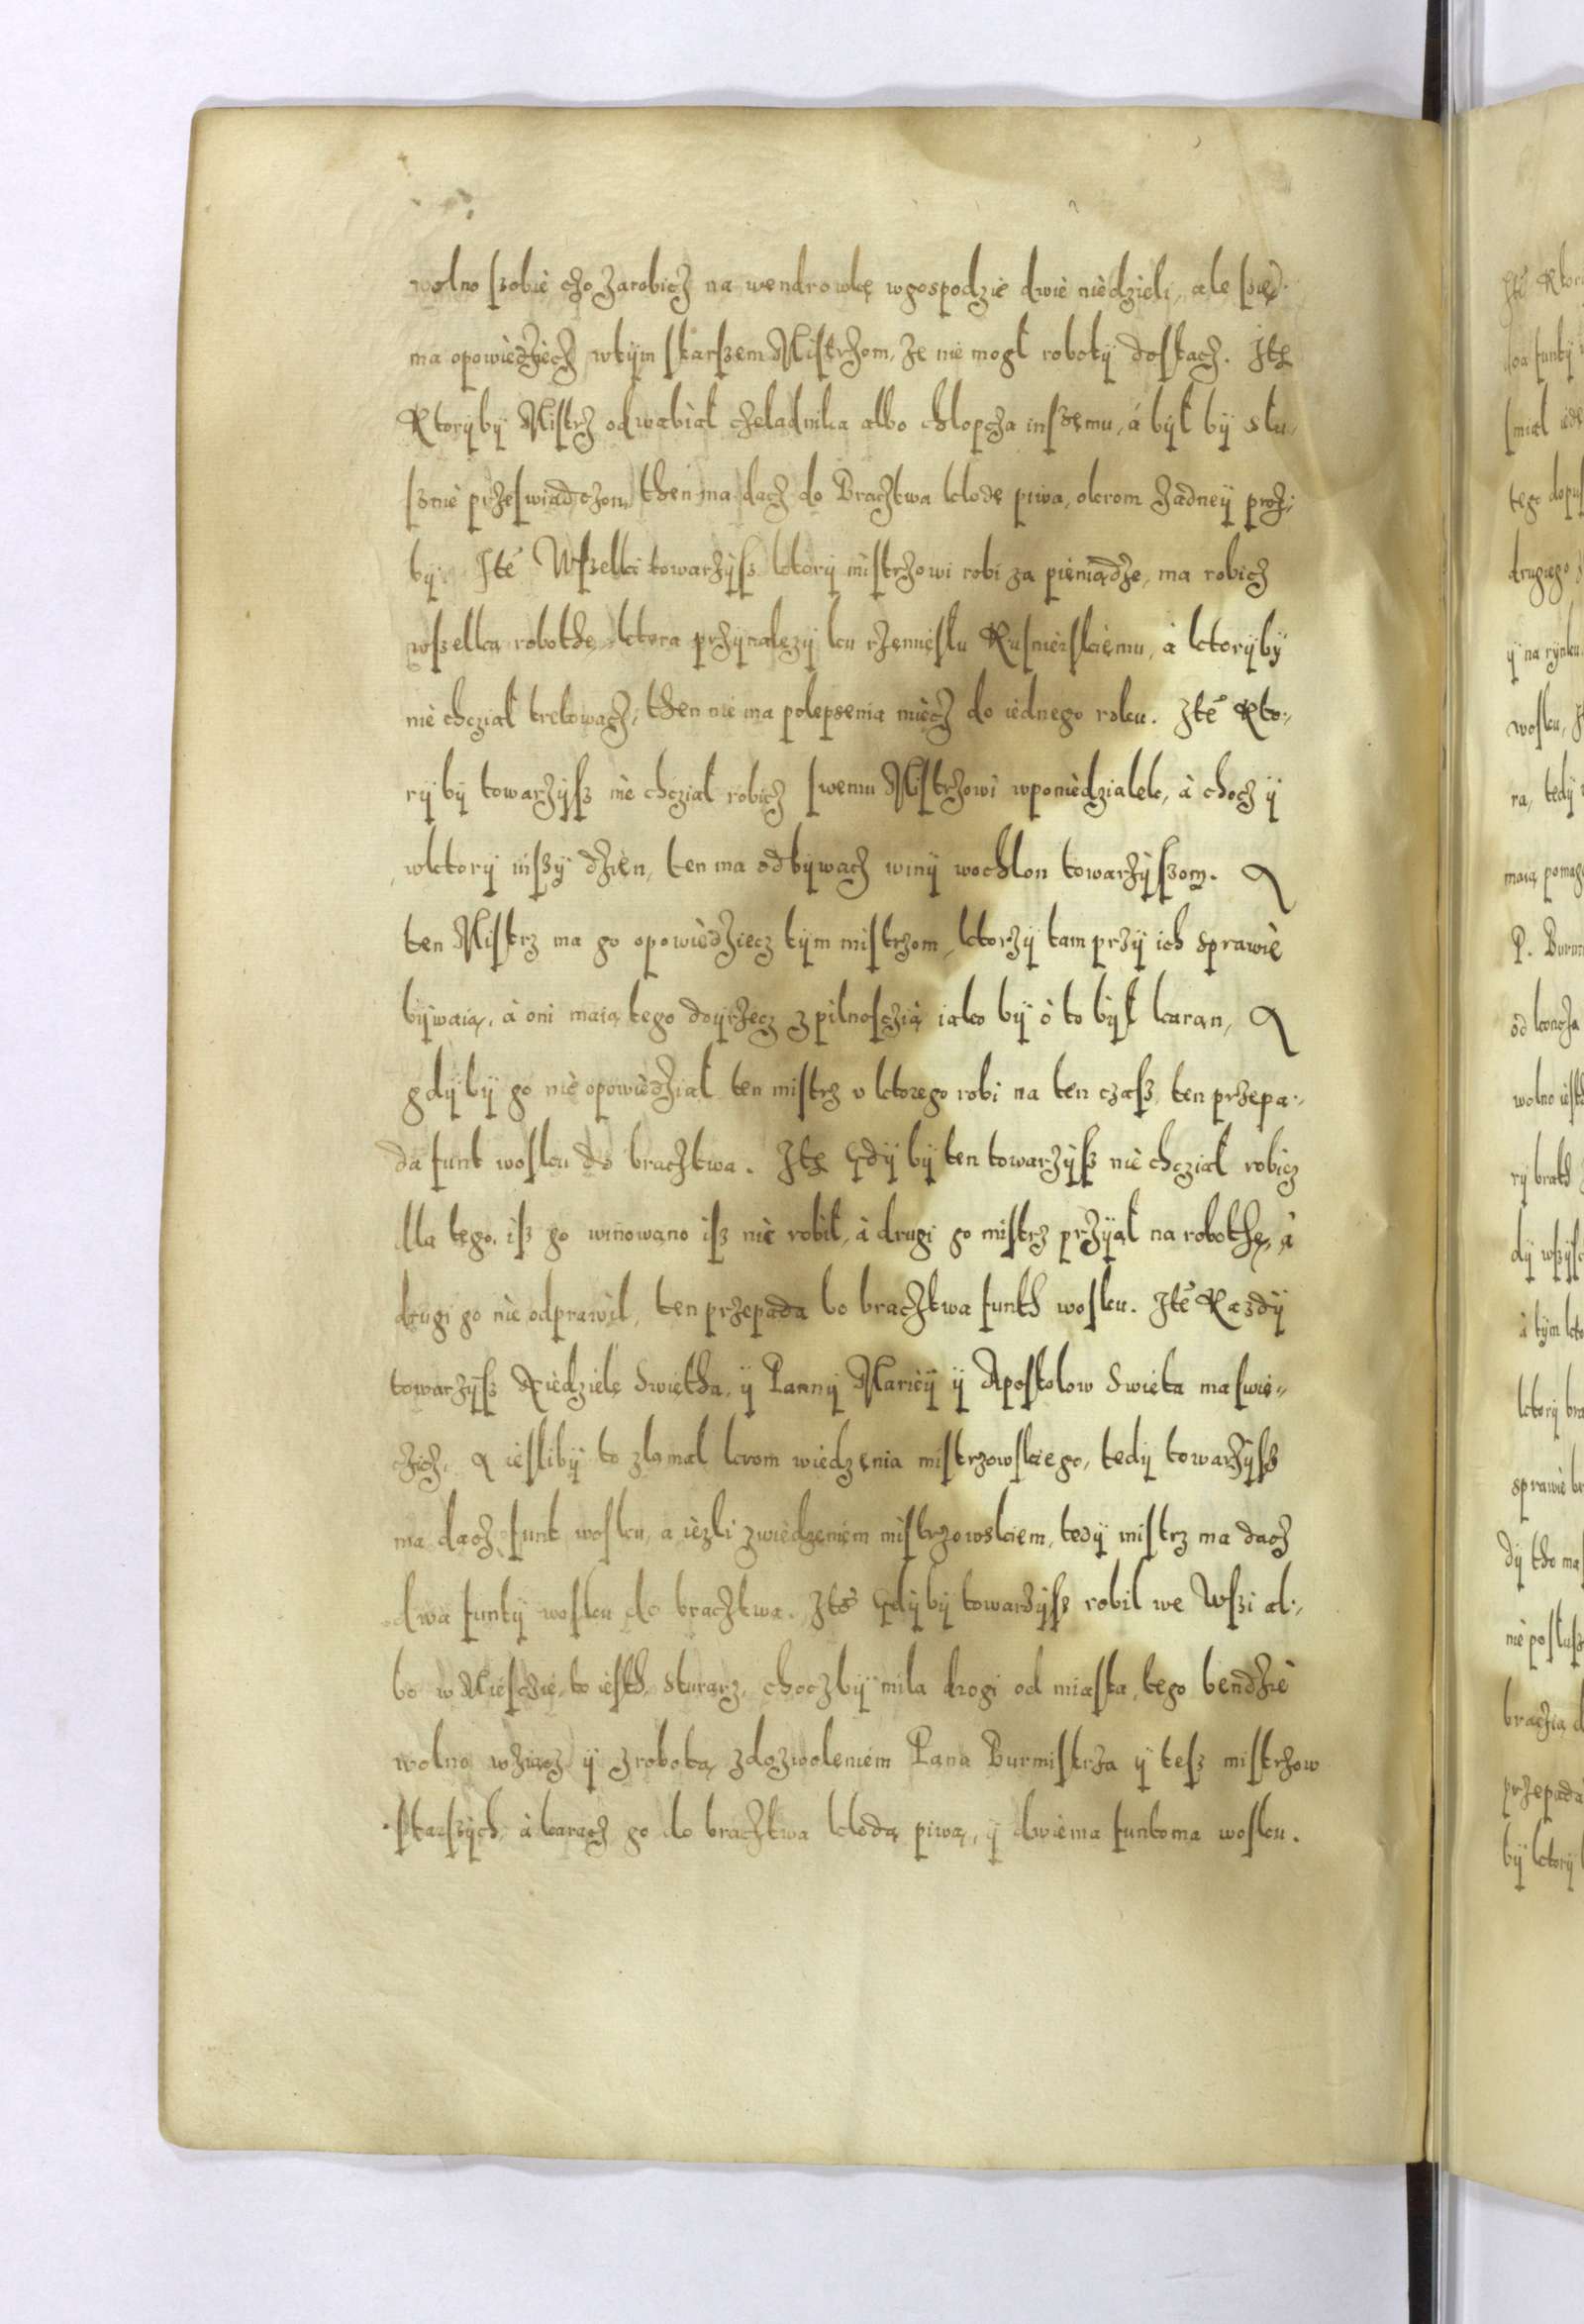 wolno ſzobie czo zarobicz na wendrowkę wgospodzie dwie niedzieli, ale ſię
ma opowiedziecz wtÿm ſtarſzem Miſtrzom, ze nie mogł robotÿ doſtacz. Itē
KtorÿbÿMiſtrz odwabiał czeladnika albo chlopcza inſzemu, á bÿł bÿ słu-
ſznie przeſwiadczon, then ma dacz do Braċztwa klodę piwa, okrom żadneÿ proż-
bÿ. Itē Wſzelki towarzÿſz ktorÿ miſtrzowi robi za pieniądze, ma robicz
wſzelką robothę ktora przÿnalezÿ ku rzemięſlu Kuſnierſkiemu, à ktorÿbÿ
nie chcział trckowacz, then nie ma polepsenia miecz do iednego roku. Itē Kto-
rÿbÿ towarzÿſz nie chcział robicz ſwemu Miſtrzowi wponiedzialek, à chocz ÿ
wktorÿ inſzÿ dzien, ten ma odbÿwacz winÿ wochlon towarzÿſzom. A
ten Miſtrz ma go opowiedziecz tÿm miſtrzom, ktorzÿ tam przÿ ich sprawie
bÿwaią, à oni maią tego doÿrzecz z pilnoſczią iako bÿ ò to bÿł karan, A
gdÿbÿ go nie opowiedział ten miſtrz v ktorego robi na ten czaſz, ten przepa-
da funt woſku do bracztwa. Itē Gdÿ bÿ ten towarzÿſz nie chcział robicz
dla tego, iſz go winowano iſz nie robił, à drugi go miſtrz przÿiął na robothę, à
drugi go nie odprawil, ten przepada bo braczſtwa funth woſku. Itē Kazdÿ
towarzÿſz Niedzielę Swiętha, ÿ Pannÿ Marieÿ ÿ Apoſtolow Swięta ma ſwię-
czicz, A ieſlibÿ to złamał krom wiedzenia miſtrzowſkiego, tedÿ towarzÿſz
ma dacz funt woſku, a iezli z wiedzeniem miſtrzowskiem, tedÿ miſtrz ma dacz
dwa funtÿ woſku do braczſtwa. Itē Gdÿ bÿ towarzÿſz robil we Wſzi al-
bo w Mieſczie, to ieſth, sturarz, choczbÿ mila drogi od miaſta, tego bendzie
wolno wziącz ÿ z robotą, z dozwoleniem Pana Burmiſtrza ÿ teſz miſtrzow
ſtarſzÿch, à karacz go do braczſtwa klodą piwa, ÿ dwiema funtoma woſku.